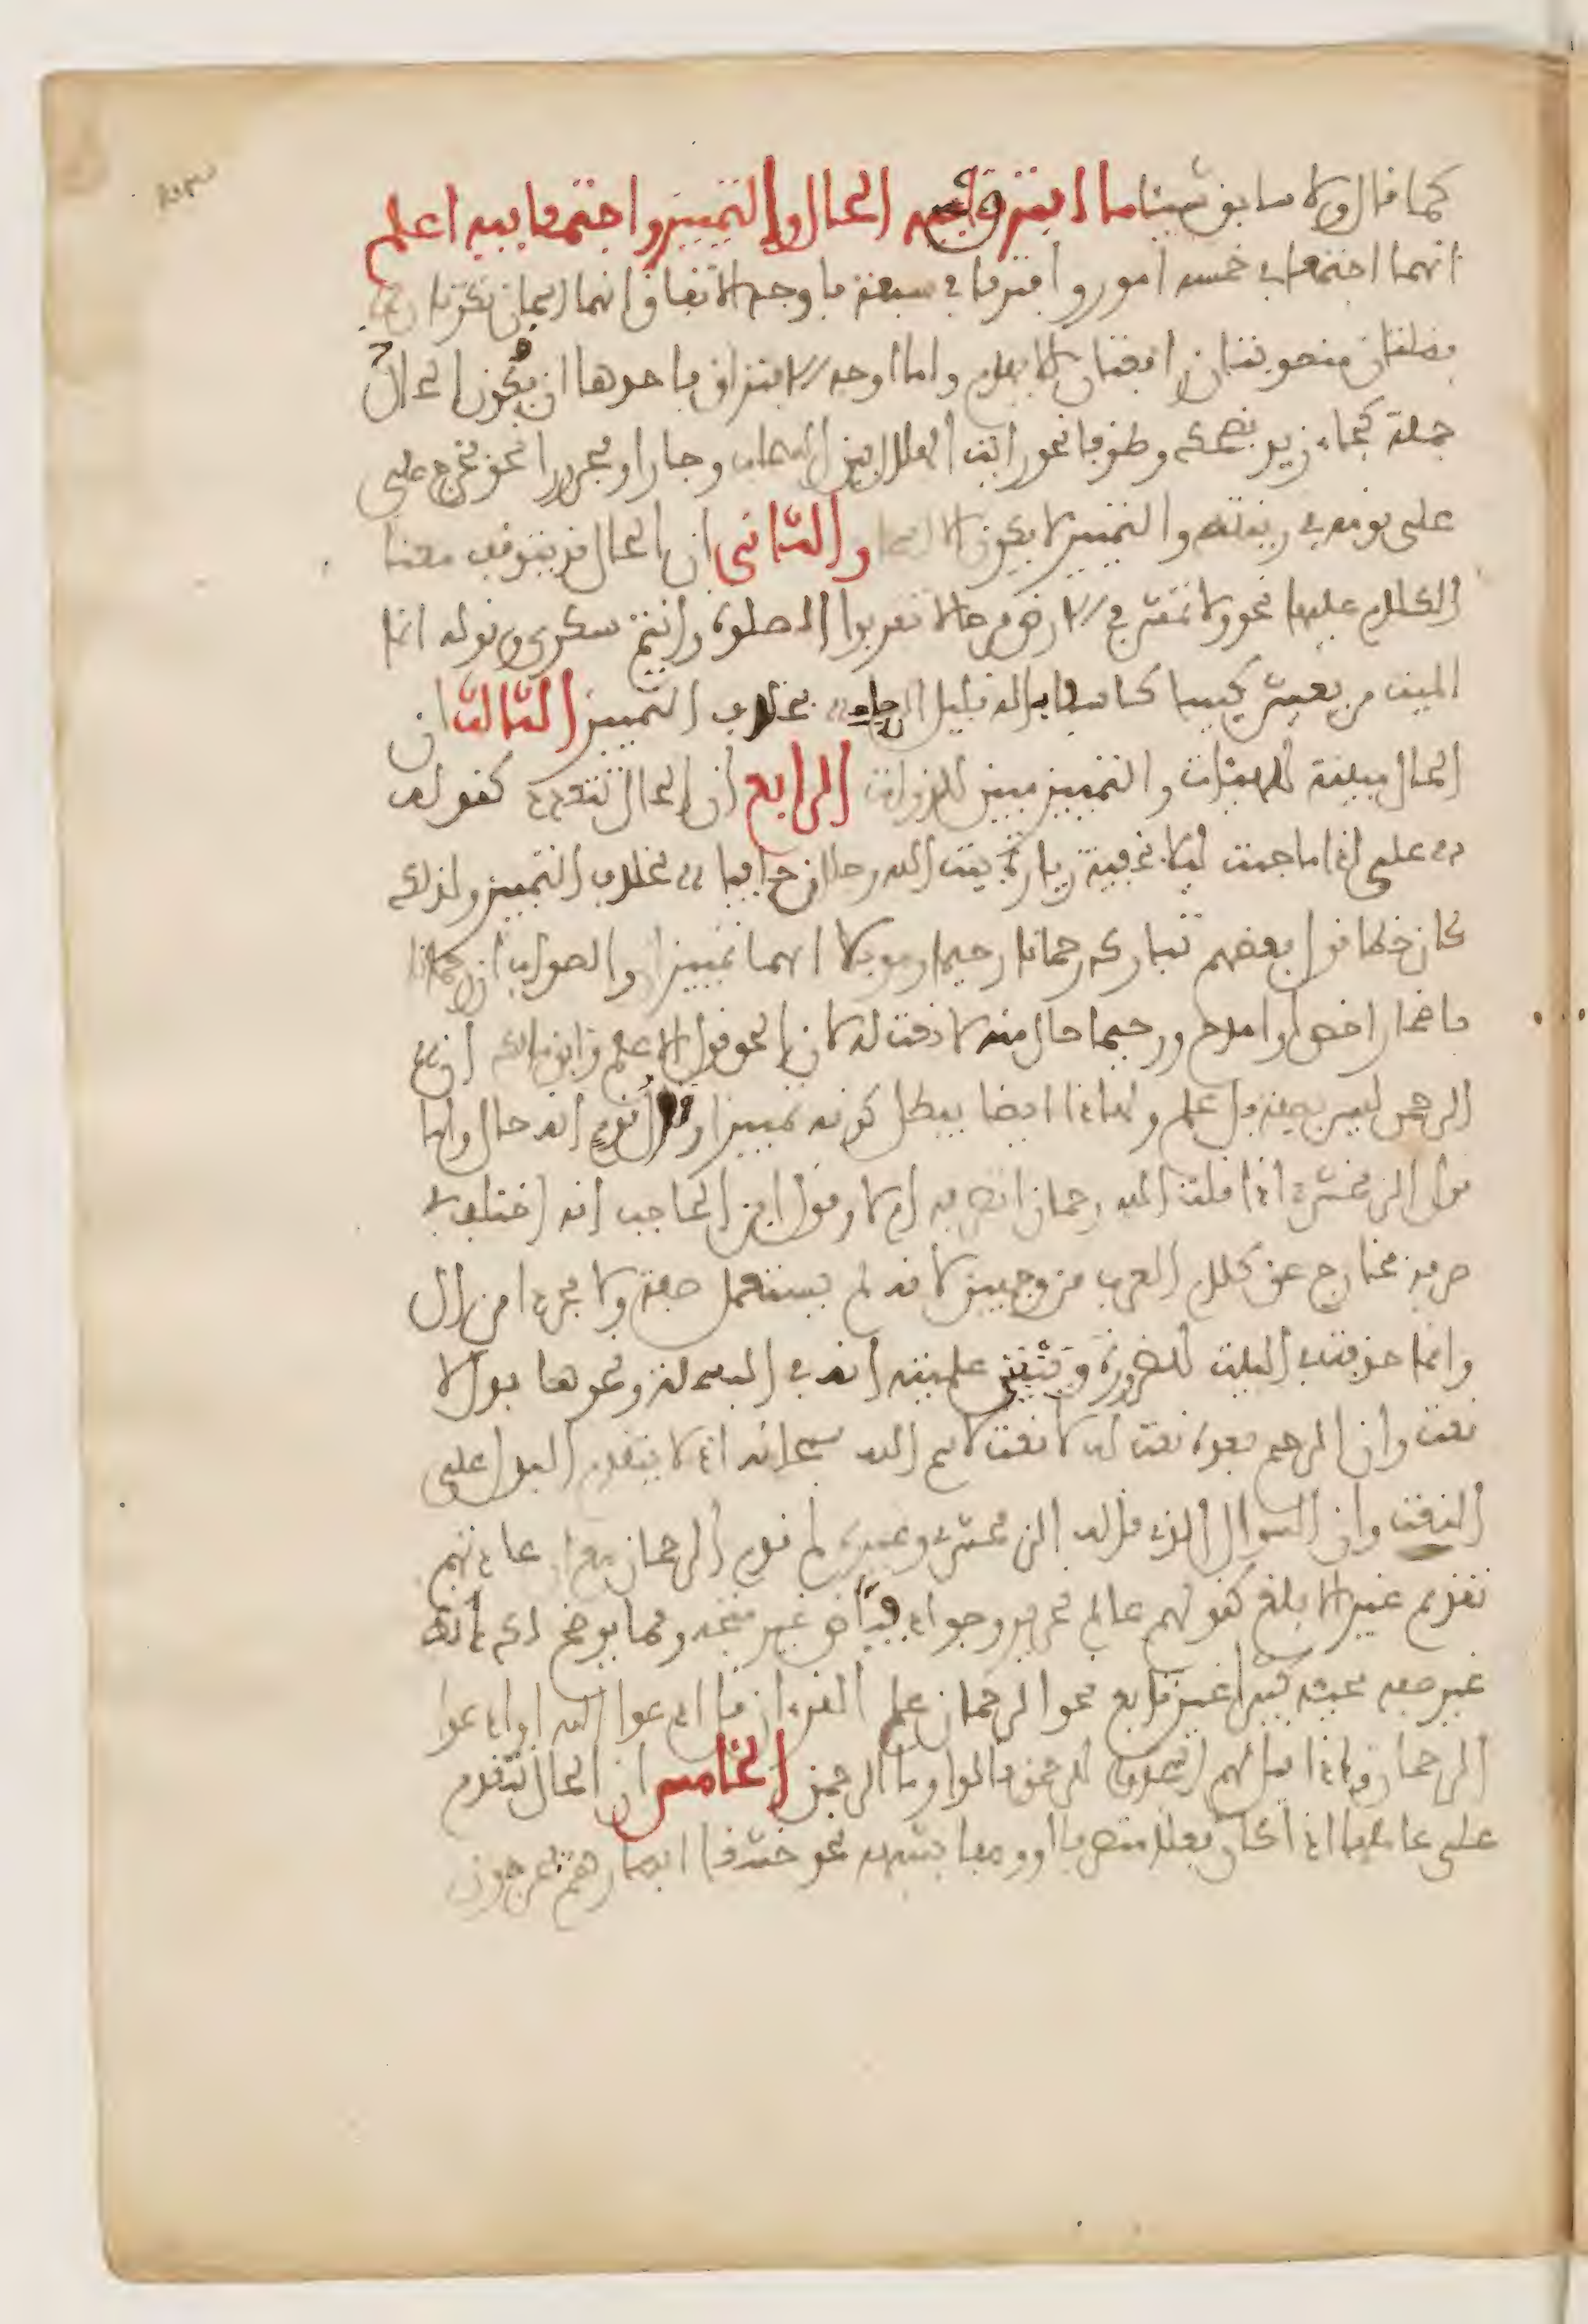 كما قال ولا سابق شيئا ما افترق فيه الحال والتمييز واجتمعا فيه اعلم
انهما اجتمعا في خمسة امور وافترقا في سبعة فاوجه الاتفاق انهما اسمان نكرتان
فضلتان منصوبتان رافعتان للابهام واما اوجه الافتراق فاحدها ان يكون الحال
جملة كجاء زيد يضحك وظرفا نحو رايت الهلال بين السحاب وجارا ومجرورا نحو فخرج على
على قومه في زينته والتمييز لا يكون الا اسما والثاني ان الحال قد يتوقف معنا
الكلام عليها نحو ولا تمش في الارض مرحا لا تقربوا الصلوة وانتم سكرى وقوله انما
الميت من يعيش كئيبا كاسفا باله قليل الرجاء بخلاف التمييز الثالث ان
الحال مبينة للهيئات والتمييز مبين للذوات الرابع ان الحال تتعدد كقوله
على اذا ما جئت ليلا بخفية زيارة بيت الله رجلان حافيا بخلاف التمييز ولذلك
كان خطا قول بعضهم تبارك رحمانا رحيما وموئلا انهما تمييز والصواب ان رحمانا
باضمار اخص او امدح ورحيما حال منه لا نعت له لان الحق قول الاعلم وابن مالك ان
الرحمن ليس بصفة بل علم ولهاذا ايضا يبطل كونه تمييزا وقول قوم انه حال واما
قول الزمخشري اذا قلت الله رحمان اتصرفه ام لا وقول ابن الحاجب انه اختلف في
صرفه فخارج عن كلام العرب من وجهين لانه لم يستعمل صفة ولا مجردا من ال
وانما حذفت في البيت للضرورة وينبني علميته انه في البسملة ونحوها بدل لا
نعت وان الرحيم بعده نعت له لا نعت لاسم الله سبحانه اذ لا يتقدم البدل على
النعت وان السوال الذي قاله الزمخشري وغيره لم قدم الرحمان مع ان عادتهم
تقديم غير الابلغ كقولهم عالم نحرير وجواد فياض غير متجه ومما يوضح لك انه
غير صفة مجيئه كثيرا غير تابع نحو الرحمان علم القرءان قل ادعوا الله او ادعوا
الرحمان واذا قيل لهم اسجدوا للرحمن قالوا وما الرحمن الخامس ان الحال تتقدم
على عاملها اذا كان فعلا متصرفا او وصفا يشبهه نحو خشعا ابصارهم يخرجون